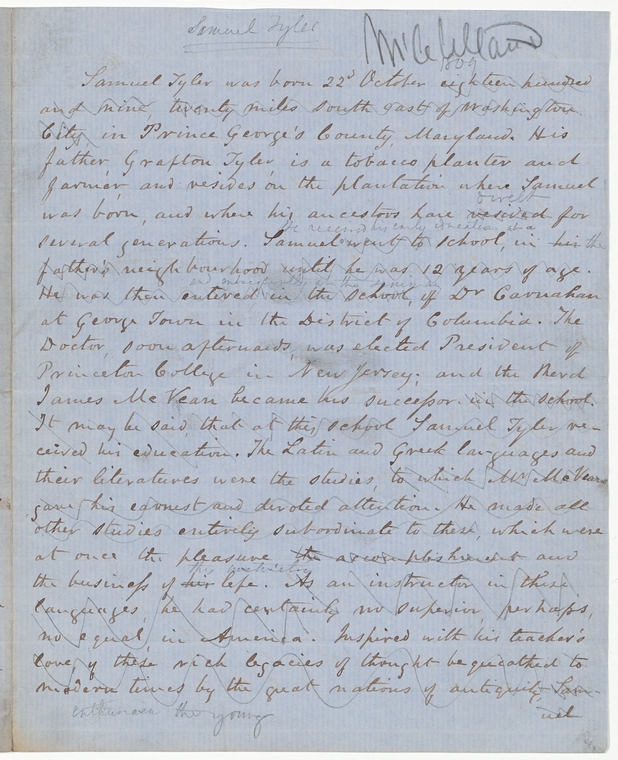 Samuel Tyler
McClelland
809
Samuel Tyler was born 22d October eighteen hundred
and nine, twenty miles south east of Washington
City, in Prince George's County, Maryland. His
father, Grafton Tyler, is a tobacco planter and
farmer, and resides on the plantation where Samuel
dwelt
was born, and where his ancestors have resided for
He received his early education at a
several generations. Samuel went to school, in his the
father's neighbourhood until he was 12 years of age.
and subsequently at the
He was then entered in the school, of Dr Carnahan
at George Town in the District of Columbia. The
Doctor, soon afterwards, was elected President of
Princeton College in New Jersey; and the Revd
James McVean became his successor in the school.
It may be said, that at this school Samuel Tyler re-
ceived his education. The Latin and Greek languages and
their literatures were the studies, to which Mr McVean
gave his earnest and devoted attention. He made all
other studies entirely subordinate to these, which were
at once the pleasure the accomplishment and
the business of his life. As an instructor in these
languages, he had certainly no superior, perhaps,
no equal, in America. Inspired with his teacher's
love of these rich legacies of thought bequeathed to
modern times by the great nations of antiquity Sam-
the young
uel